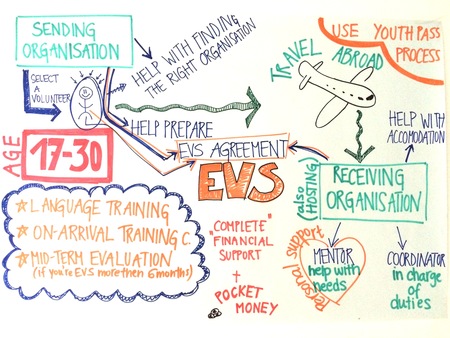 SENDING
ORGANISATION
SELECT
A
VOLUNTEER
HELP WITH FINDING
THE RIGHT ORGANISATION
HELP PREPARE
TRAVEL
ABROAD
USE YOUTHPASS
PROCESS
HELP WITH
ACCOMODATION
AGE
17-30
EVS AGREEMENT
EVS
(also
HOSTING)
RECEIVING
ORGANISATION
LANGUAGE TRAINING
ON-ARRIVAL TRAINING C.
MID-TERM EVALUATION
(if you're EVS more then 6 months)
"COMPLETE"
FINANCIAL
SUPPORT
+
POCKET
MONEY
Personal support
MENTOR
help with
needs
COORDINATOR
in charge
of
duties